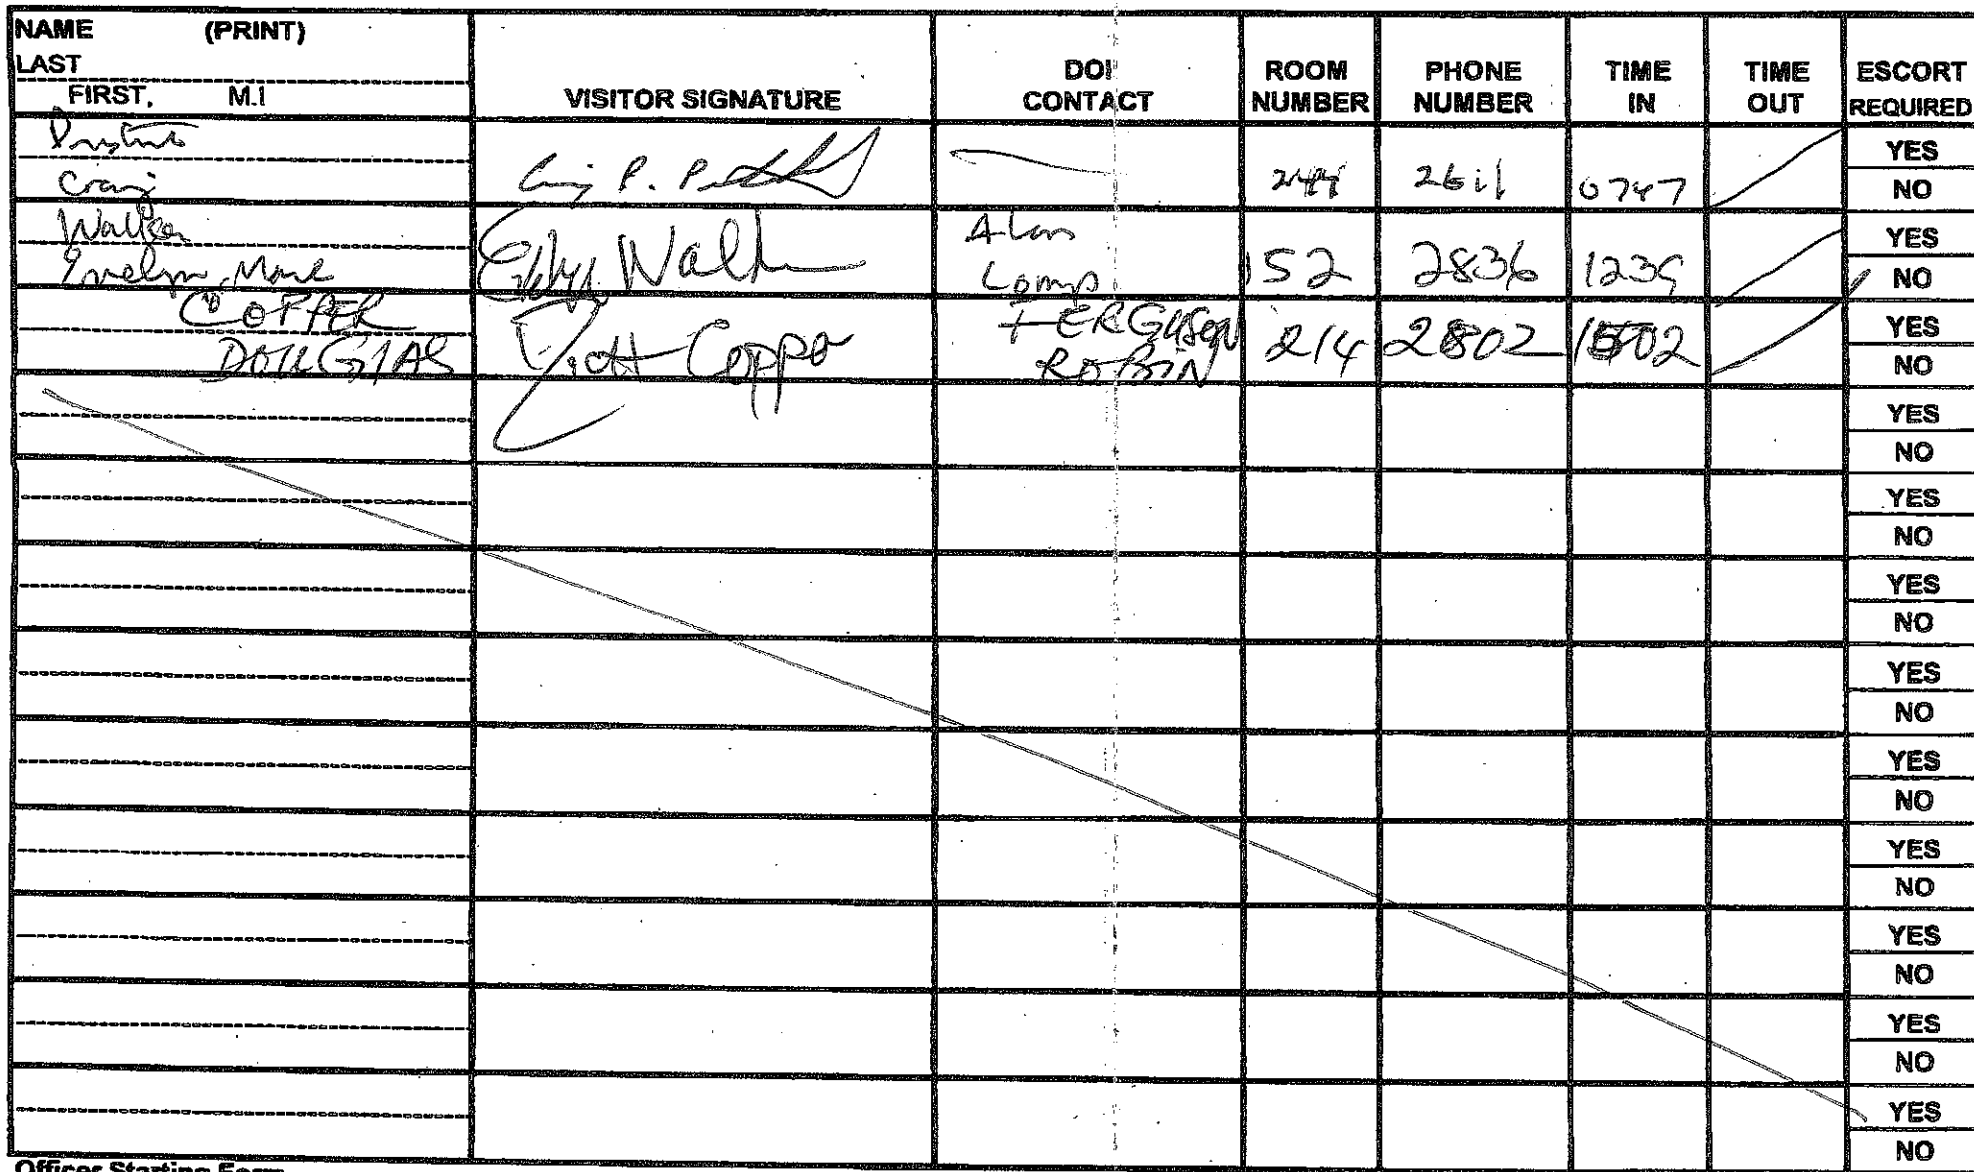 NAME (PRINT)
LAST
FIRST, M.I
VISITOR SIGNATURE
DOI
CONTACT
ROOM
NUMBER
PHONE
NUMBER
TIME
IN
TIME
OUT
ESCORT
REQUIRED
Craig
P.
2611
0747
YES
NO
Walker
Evelyn, Marie
Walk
Alan
152
2836
1239
YES
NO
COPPER
DOUGLAS
Scott Copper
FERGUSON
ROBIN
214
2802
1502
YES
NO
YES
NO
YES
NO
YES
NO
YES
NO
YES
NO
YES
NO
YES
NO
YES
NO
YES
NO
Officer Starting Form